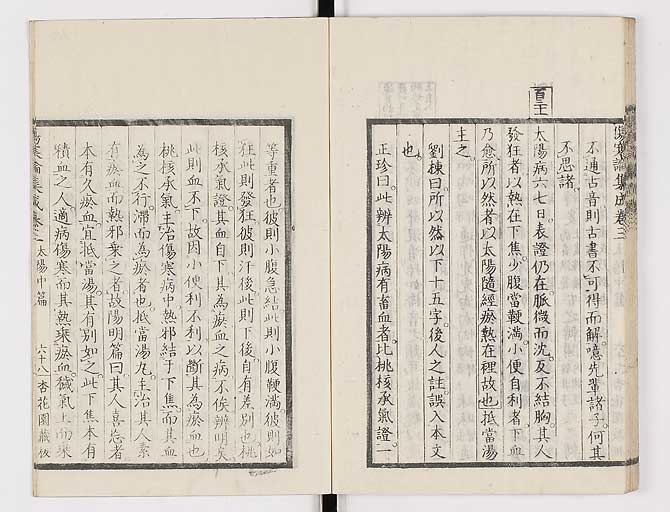 傷寒論集成卷三
不通古音則古書不可得而解噫先輩諸子何其
不思諸
百三
太陽病六七日表證仍在脈微而沈反不結胸其人
發狂者以熱在下焦少腹當鞕滿小便自利者下血
乃愈所以然者以太陽隨經瘀熱在裡故也抵當湯
主之
劉棟曰所以然以下十五字後人之註誤入本文
也
正珍曰此辨太陽病有畜血者比桃核承氣證一
等重者也彼則小腹急結此則小腹鞕滿彼則如
狂此則發狂彼則汗後此則下後自有差別也桃
核承氣證其血自下其為瘀血之病不俟辨明矣
此則血不下故因小便利不利以斷其為瘀血也
桃核承氣主治傷寒病中熱邪結于下焦而其血
為之不行滯而為瘀者也抵當湯丸主治其人素
有瘀血而熱邪乘之者故陽明篇曰其人喜忘者
本有久瘀血宜抵當湯其有別如之此下焦本有
積血之人適病傷寒而其熱乘瘀血穢氣上而乘
傷寒論集成卷三 太陽中篇 六十八 杏花園藏板